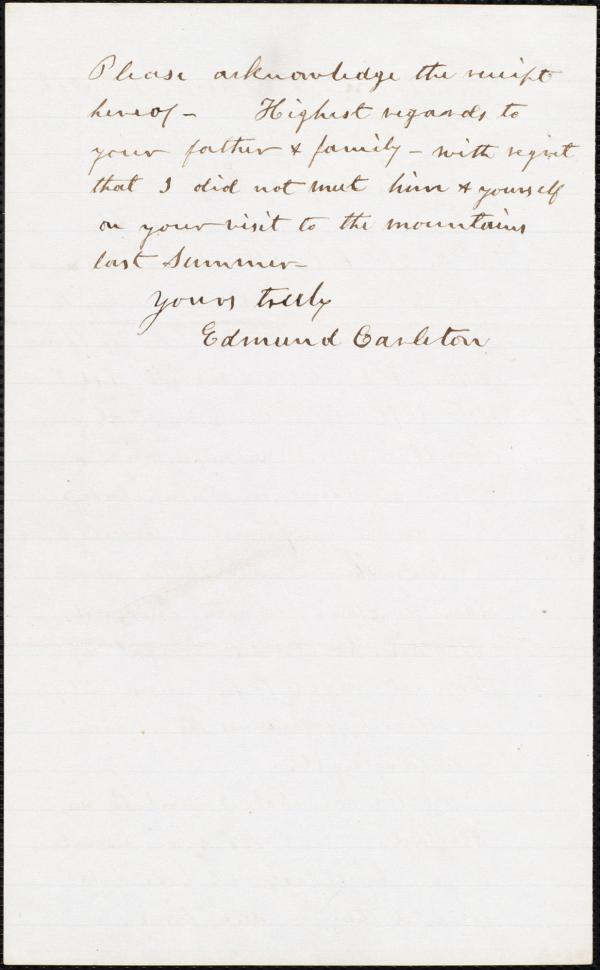 Please acknowledge the receipt
hereof – Highest regards to
your father & family – with regret
that I did not meet him & yourself
on your visit to the mountains
last Summer –
Yours truly
Edmund Carleton